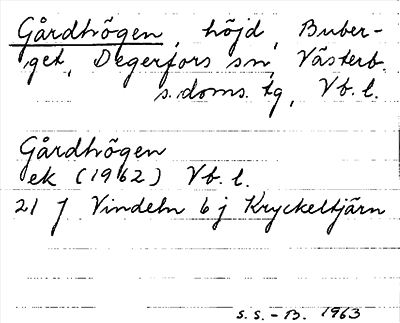 Gårdhögen, höjd, Buber-
get, Degerfors sn, Västerb.
s. doms. tg, Vb. l.
Gårdhögen
ek (1962) Vb. l.
21 J Vindeln 6 j Kryckeltjärn
S. S. - B. 1963